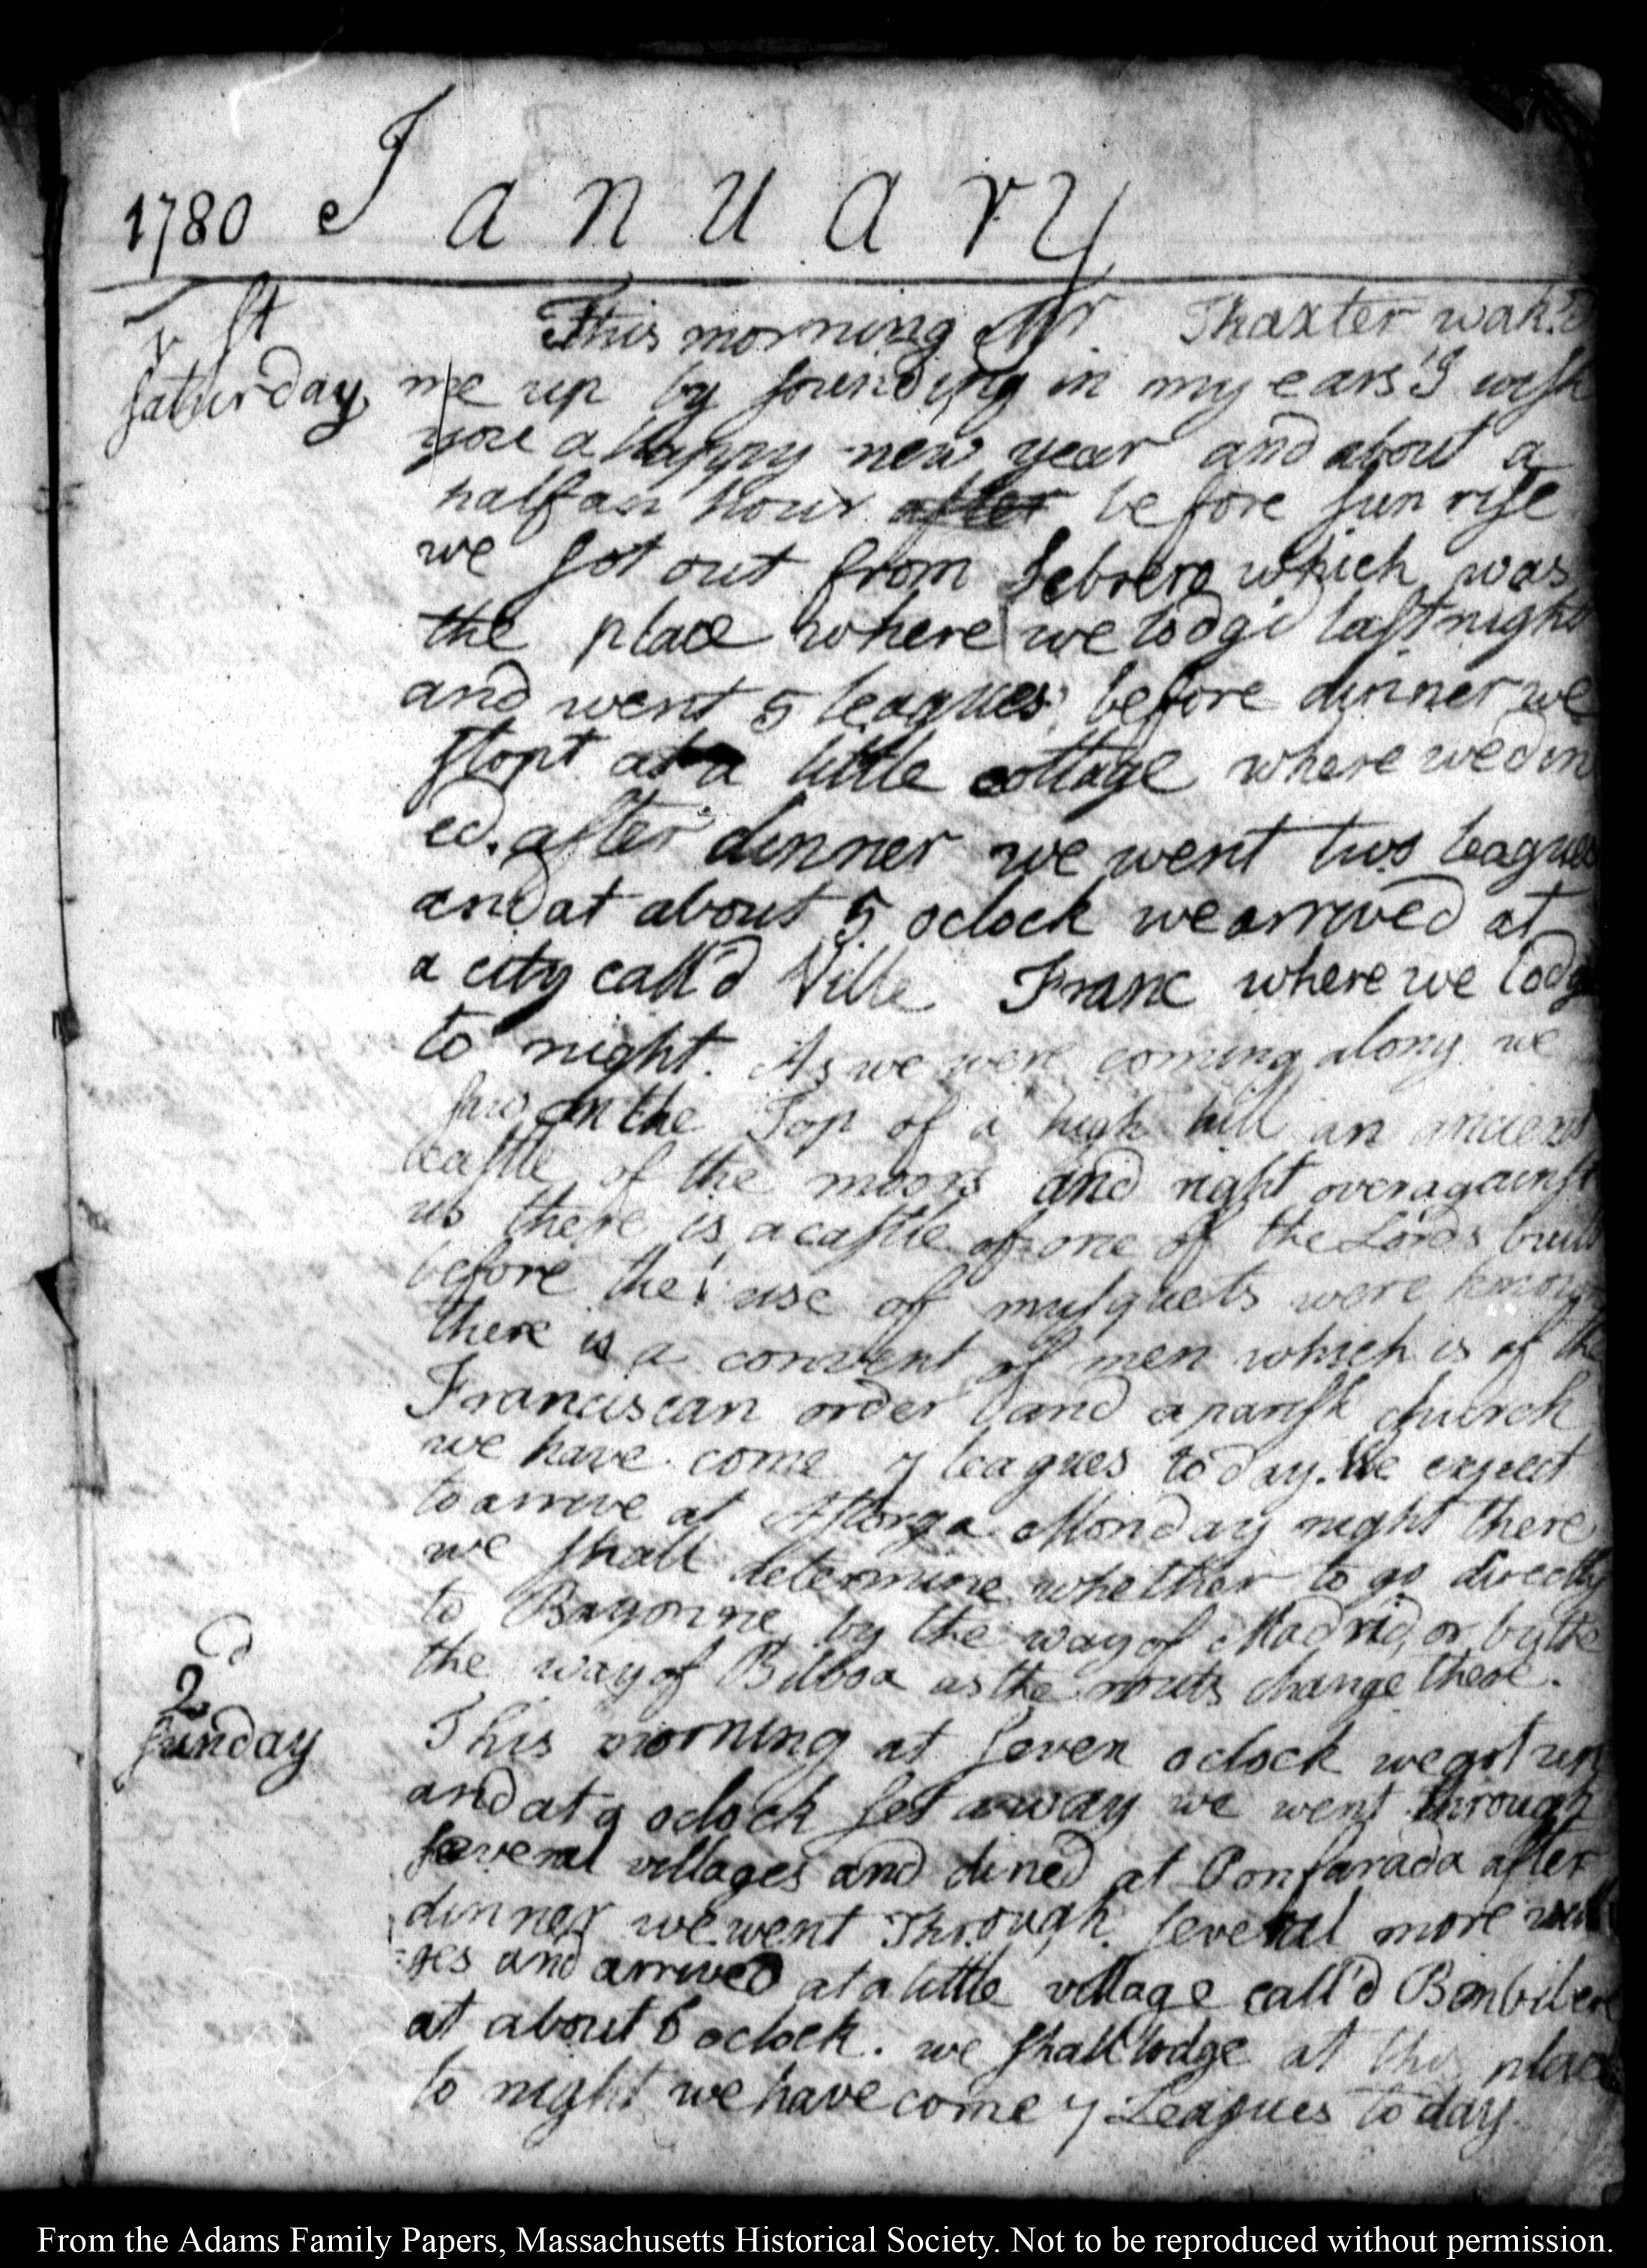 1780 January
1st
Saturday
This morning Mr. Thaxter wak'd
me up by sounding in my ears I wish
you a happy new year and about a
half an hour after before sun rise
we sot out from Sebrero which was
the place where we lodg'd last night
and went 5 leagues before dinner we
stopt at a little cottage where we din
ed. after dinner we went two leagues
and at about 5 oclock we arrived at
a city call'd Ville Franc where we lodge
to night. As we were coming along we
saw on the Top of a high hill an ancient
castle of the moors and right overagainst
us there is a castle of one of the Lords built
before the use of musquets were known
there is a convent of men which is of the
Franciscan order and a parish church
we have come 7 leagues to day. We expect
to arrive at Astorga Monday night there
we shall determine whether to go directly
to Bayonne by the way of Madrid, or by the
the way of Bilboa as the routs change there.
2d
Sunday
This morning at seven oclock we got up
and at 9 oclock set away we went through
several villages and dined at Ponfarada after
dinner we went Through several more villa
=ges and arrived at a little village call'd Bembibere
at about 6 oclock. we shall lodge at this place
to night we have come 7 Leagues to day.
From the Adams Family Papers, Massachusetts Historical Society. Not to be reproduced without permission.